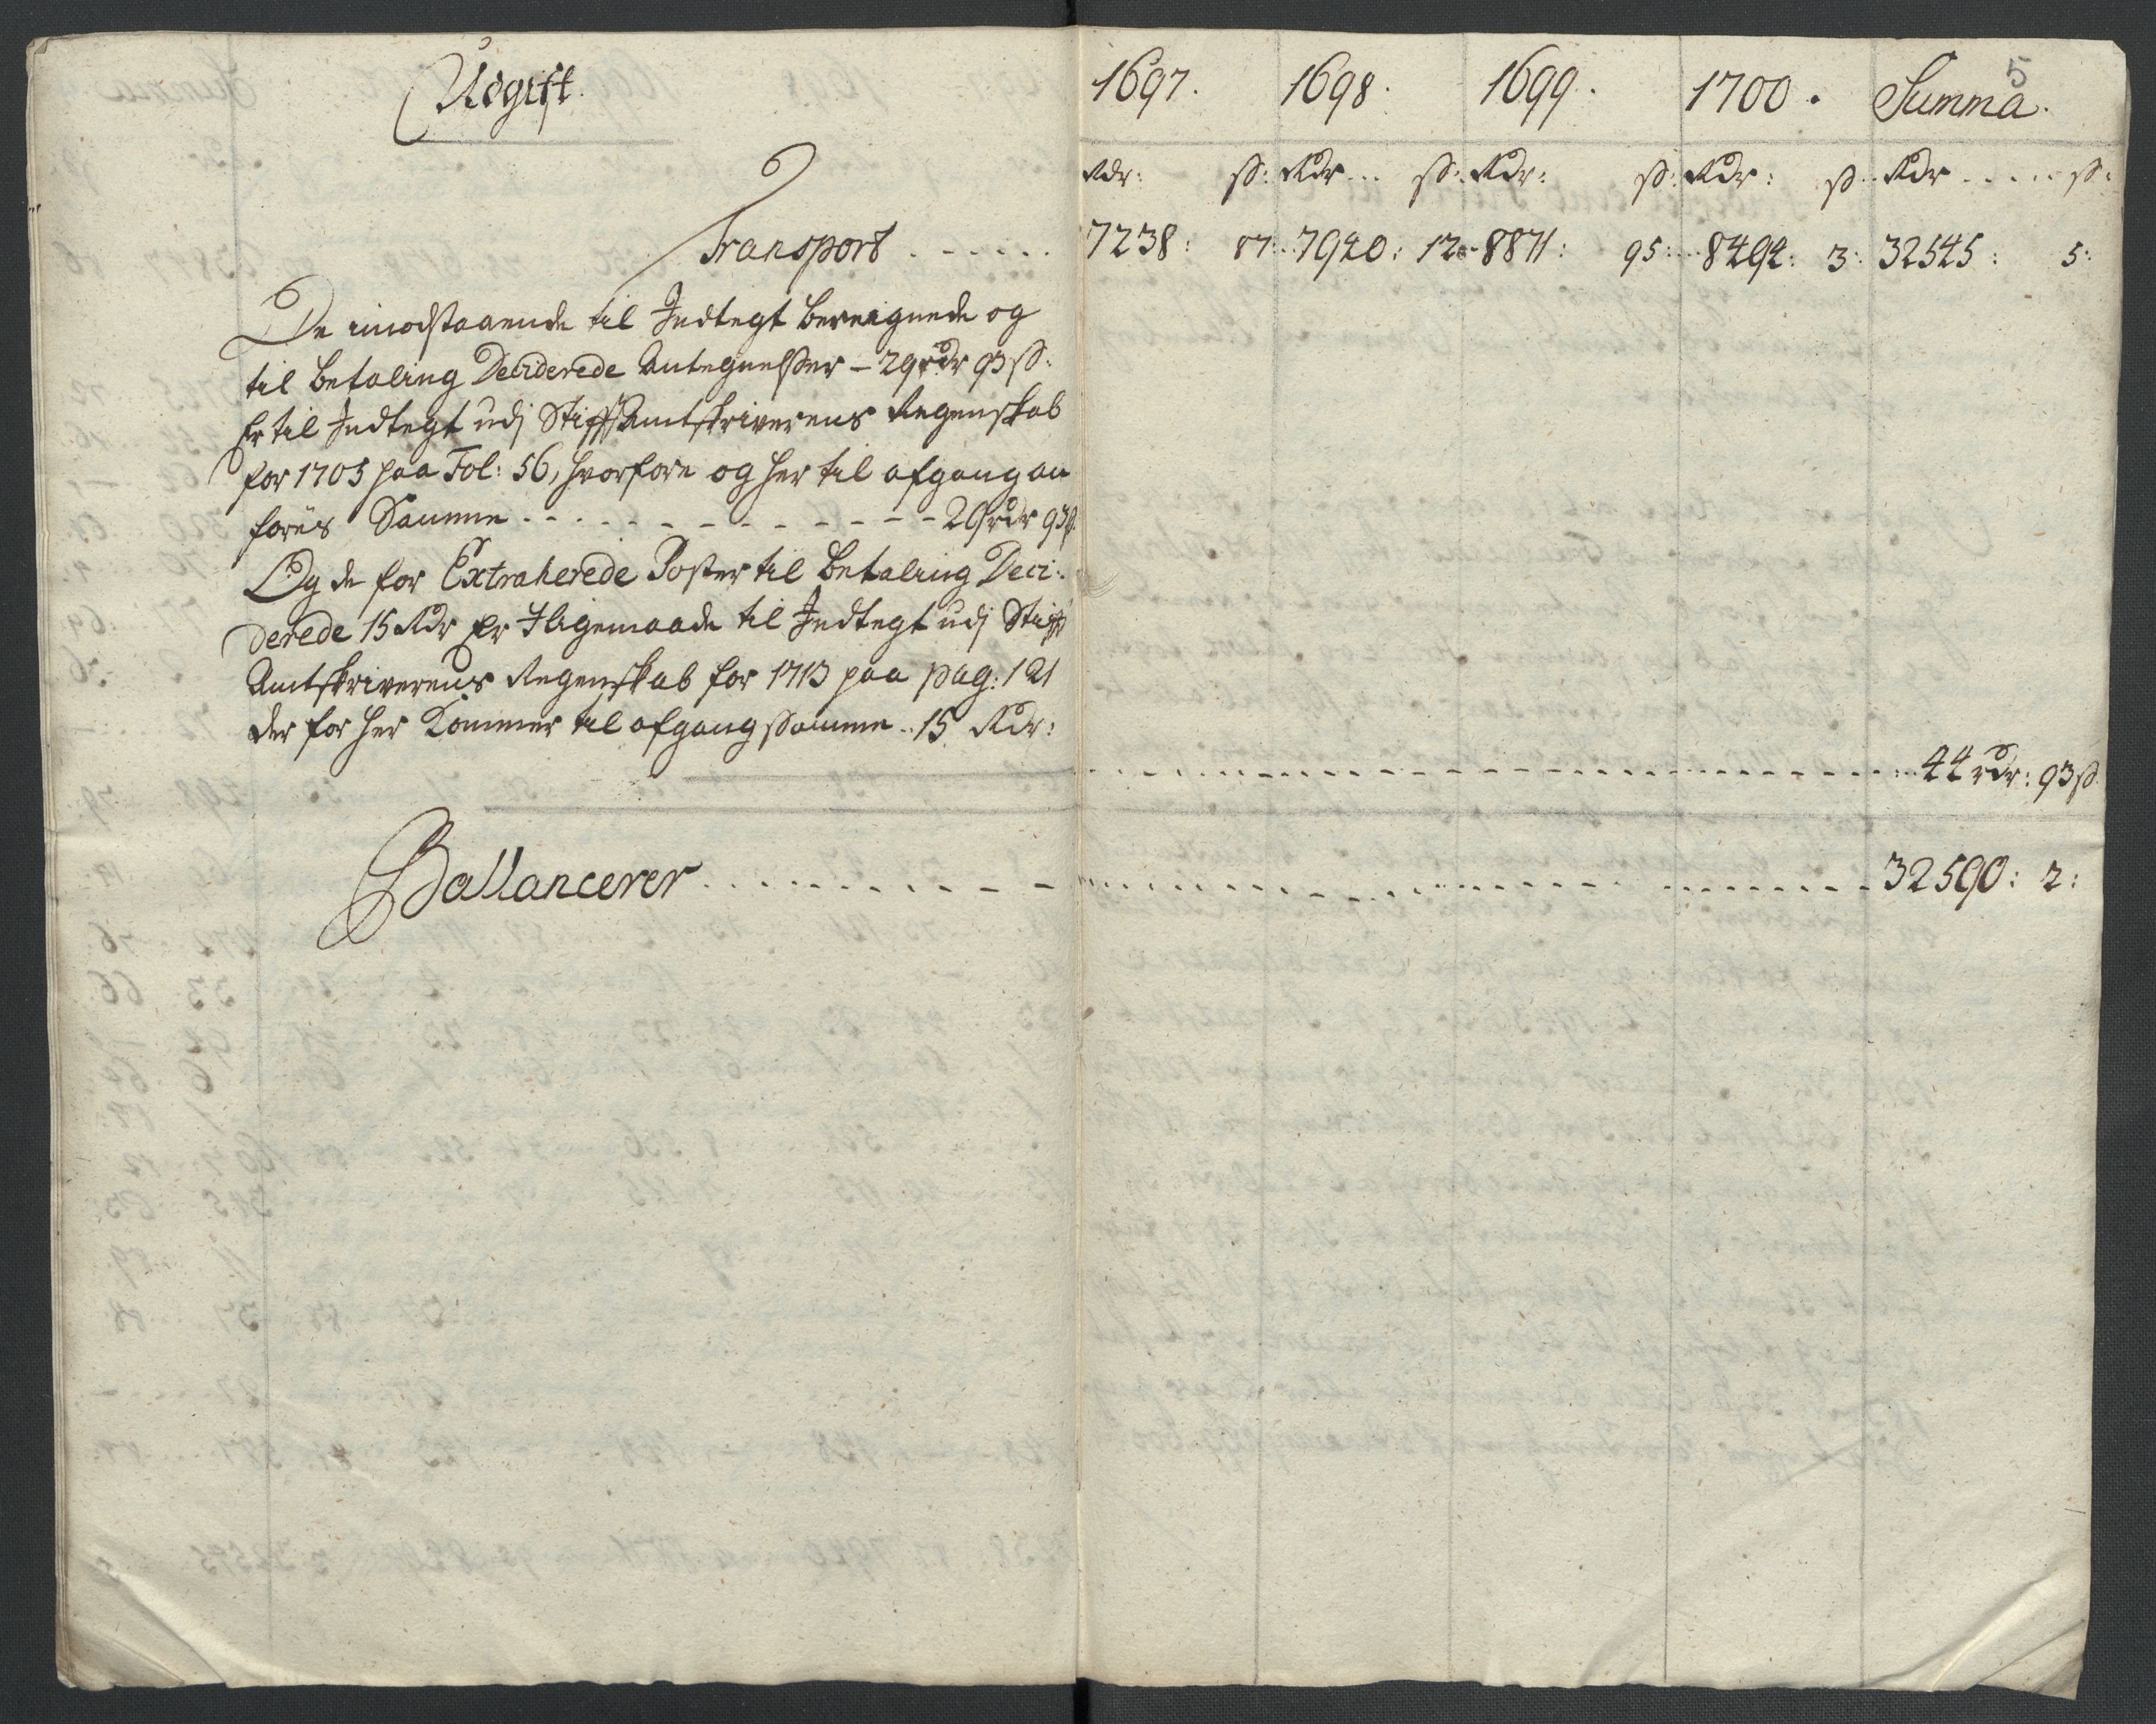 Udgift.
1697. 1698. 1699. 1700. Summa. 5
Rdr: ß: Rdr... ß: Rdr: ß: Rdr: ß.. Rdr ..... ß:
Transport . - - - . . 7238: 87: 7940: 12.- 8871: 95: 8494: 3: 32545: 5:
De imodstaaende til Indtegt bereignede og
til betaling Deciderede Antegnelßer – 29 rdr 93 ß.
Er til Indtegt udj Stifft Amtskriverens Regenskab
for 1705 paa Fol: 56, hvorfore og her til afgang an
føris Summe - - - - - - - - - - 29 rdr 93 ß.
Og de for Extraherede Poster til betaling Deci-
derede 15 Rdr Er Iligemaade til Indtegt udj Stifft
Amtskriverens Regenskab for 1713 paa pag: 121
der for her Kommer til afgang ßumme .. 15 Rdr:
- - - - - - - - - - 44 rdr: 93 ß
Ballancerer - - - - - - - - - - 32590: 2: